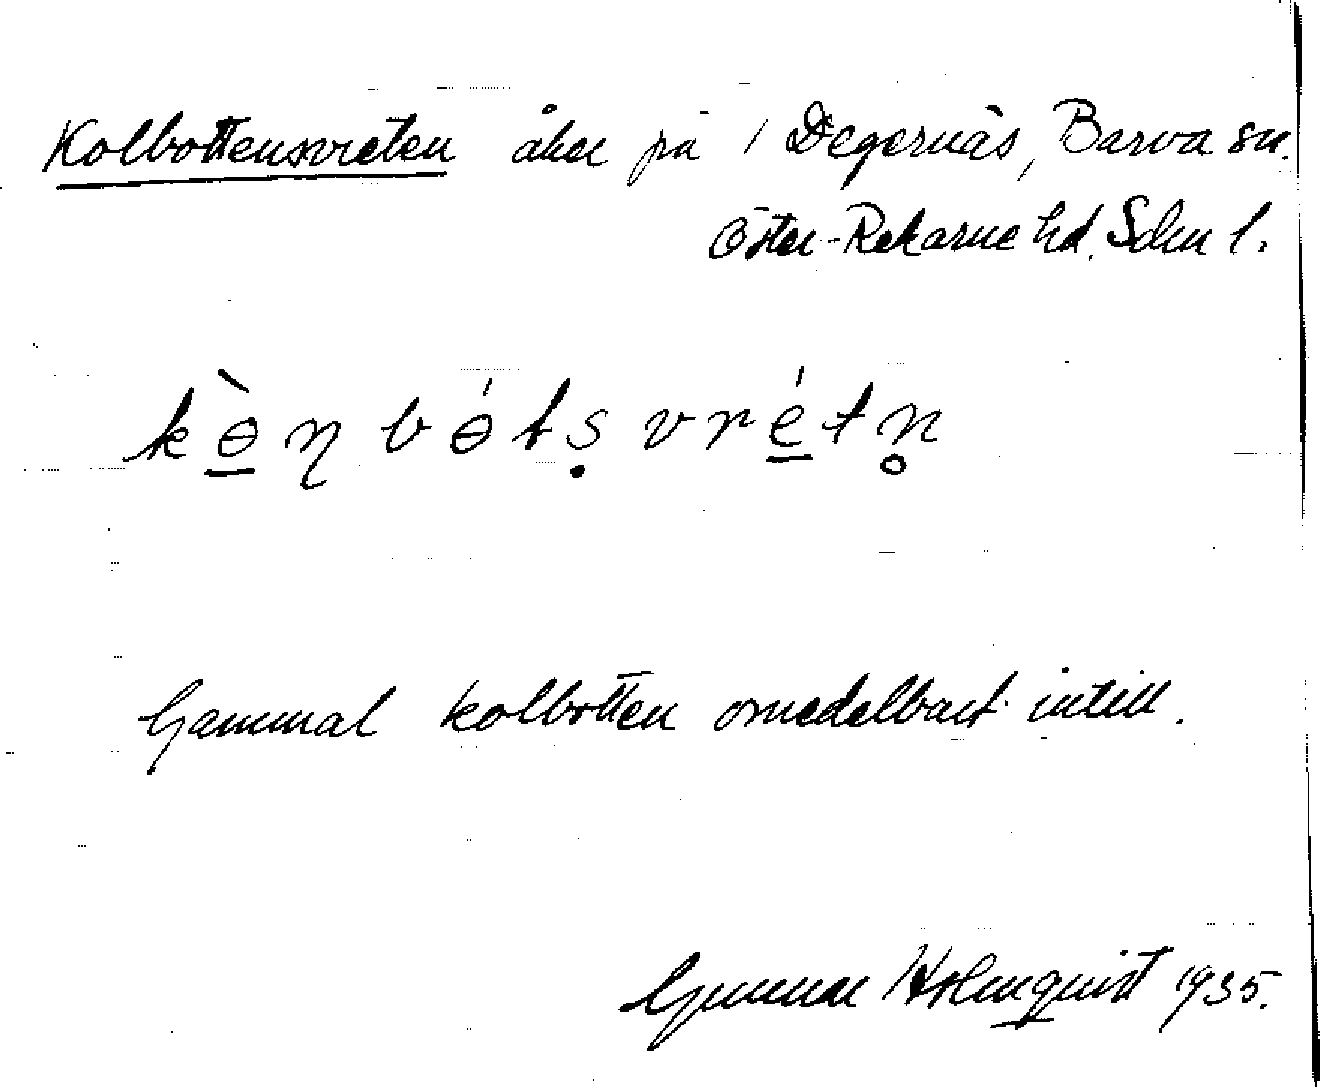 Kolbottensvreten åker på / Degernäs, Barva sn.
Öster-Rekarne hd. Sdm l.
kɵ̀ŋbɵ́tṣvrétn̥
Gammal kolbotten omedelbart intill.
Gunnar Holmquist 1935.